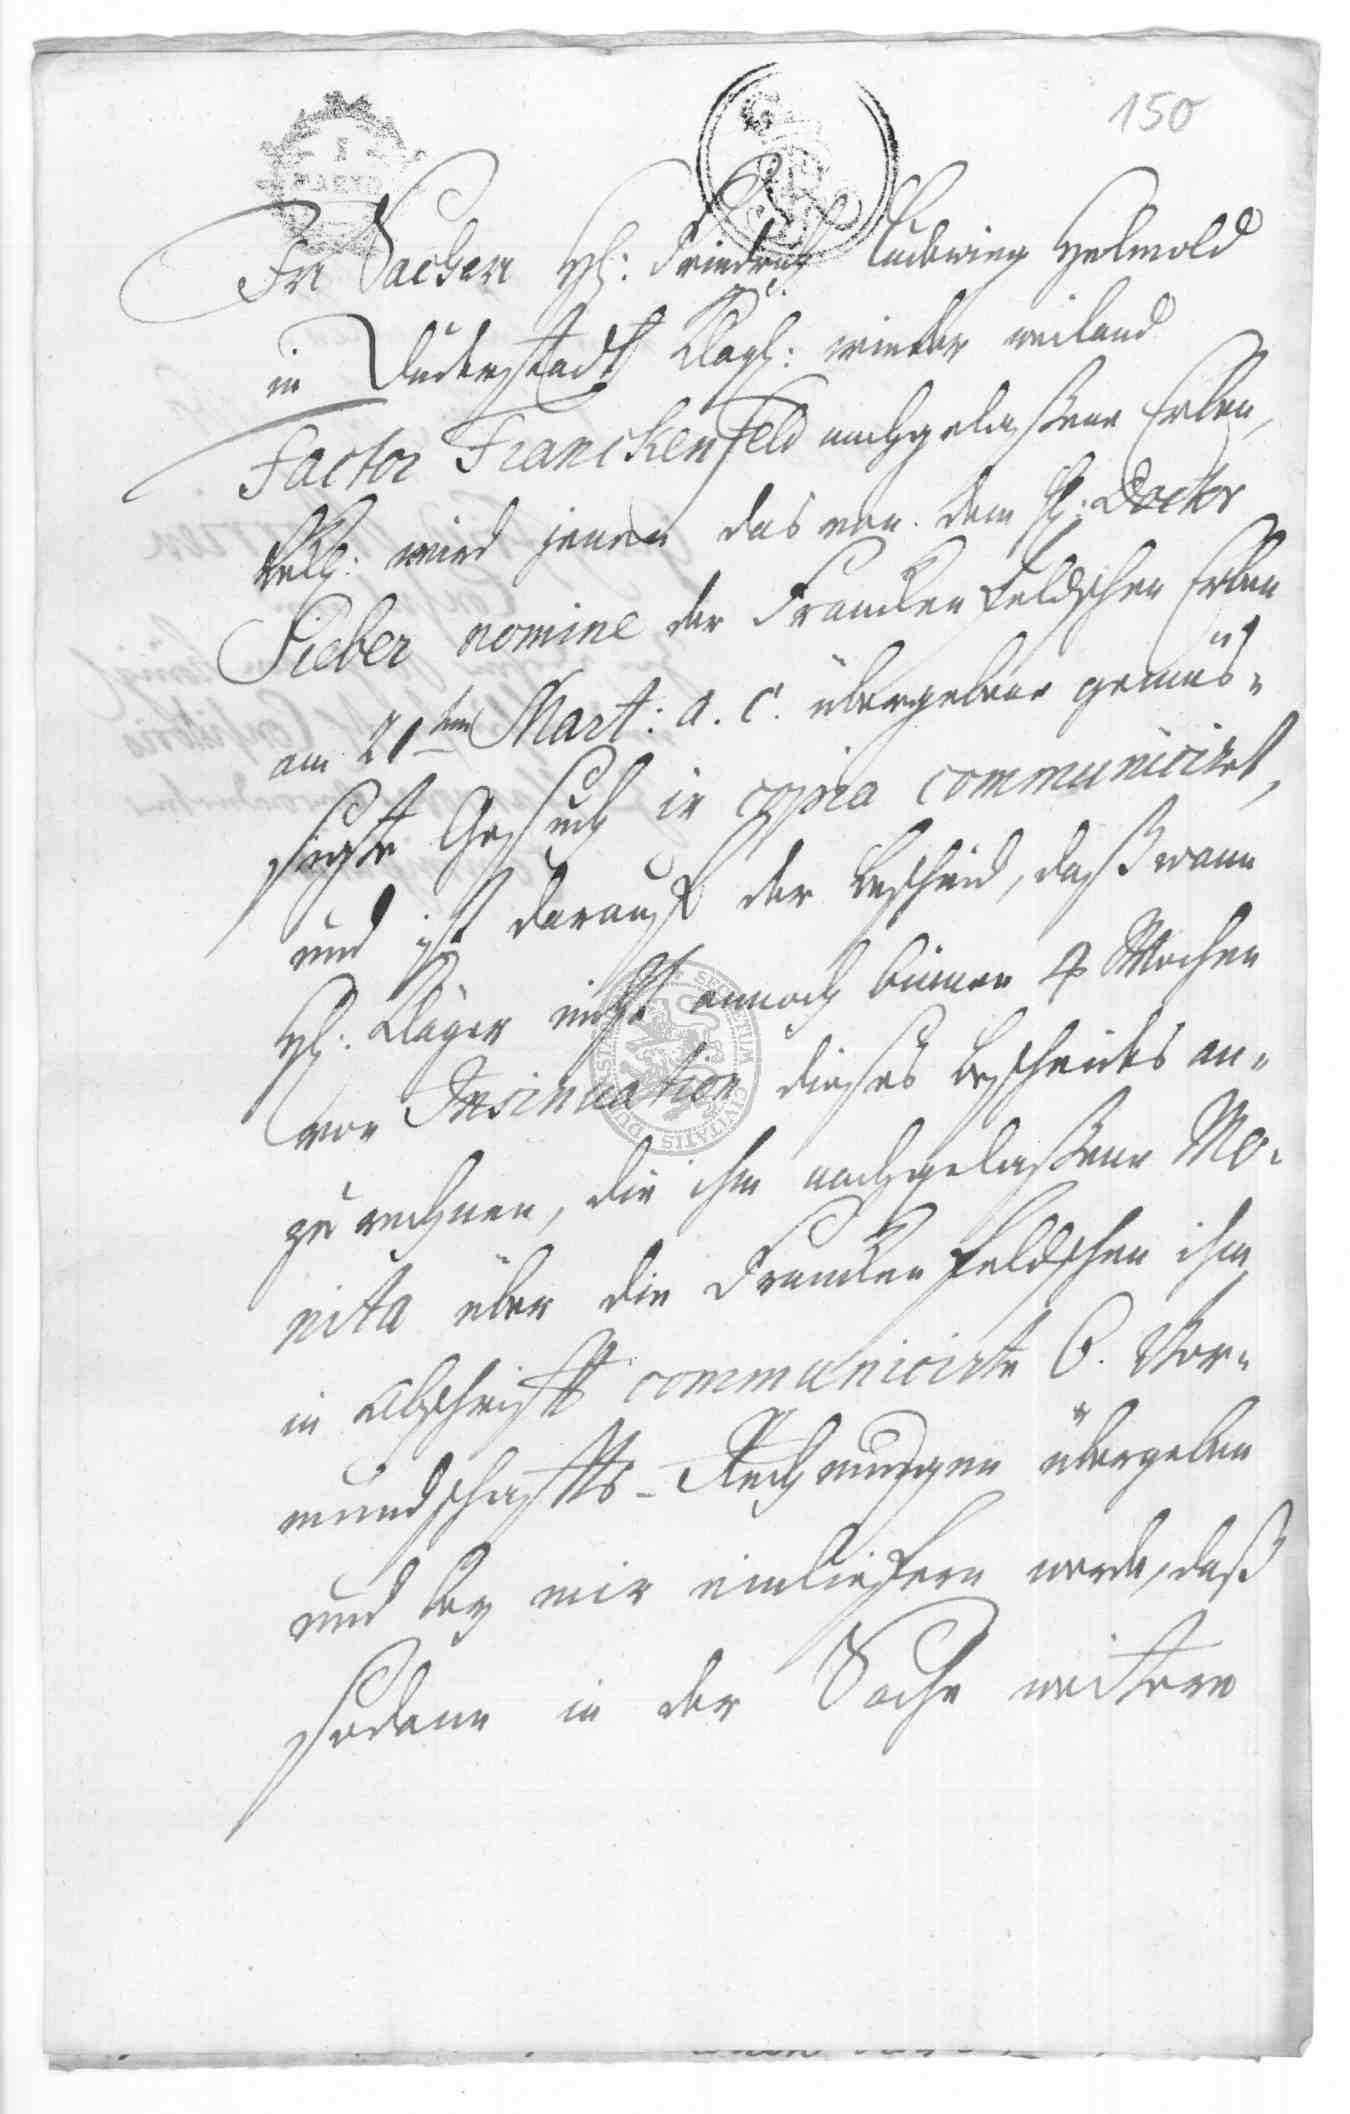 150
In Sachen H: Friedrich Ludewieg Helmold
in Duderstadt Klag: wieder weiland
Factor Franckenfeld nachgelaßene Erben,
Bekl: wird jenem das von dem H: Doctor
Sieber nomine der Franckenfeldschen Erben
am 21ten Mart: a. c. übergebene gemüs=
sigte Gesuch in copia communiciret,
und ist darauf der Bescheid, daß wann
H: Kläger nicht annoch binnen 4 Wochen
von Insinuation dieses Bescheides an=
zurechnen, die ihm nachgelaßene Mo=
nita über die Franckenfeldschen ihm
in Abschrifft communicirte 6. Vor=
mundschaffts-Rechnungen übergeben
und bey mir einliefern werde, daß
sodann in der Sache weitere